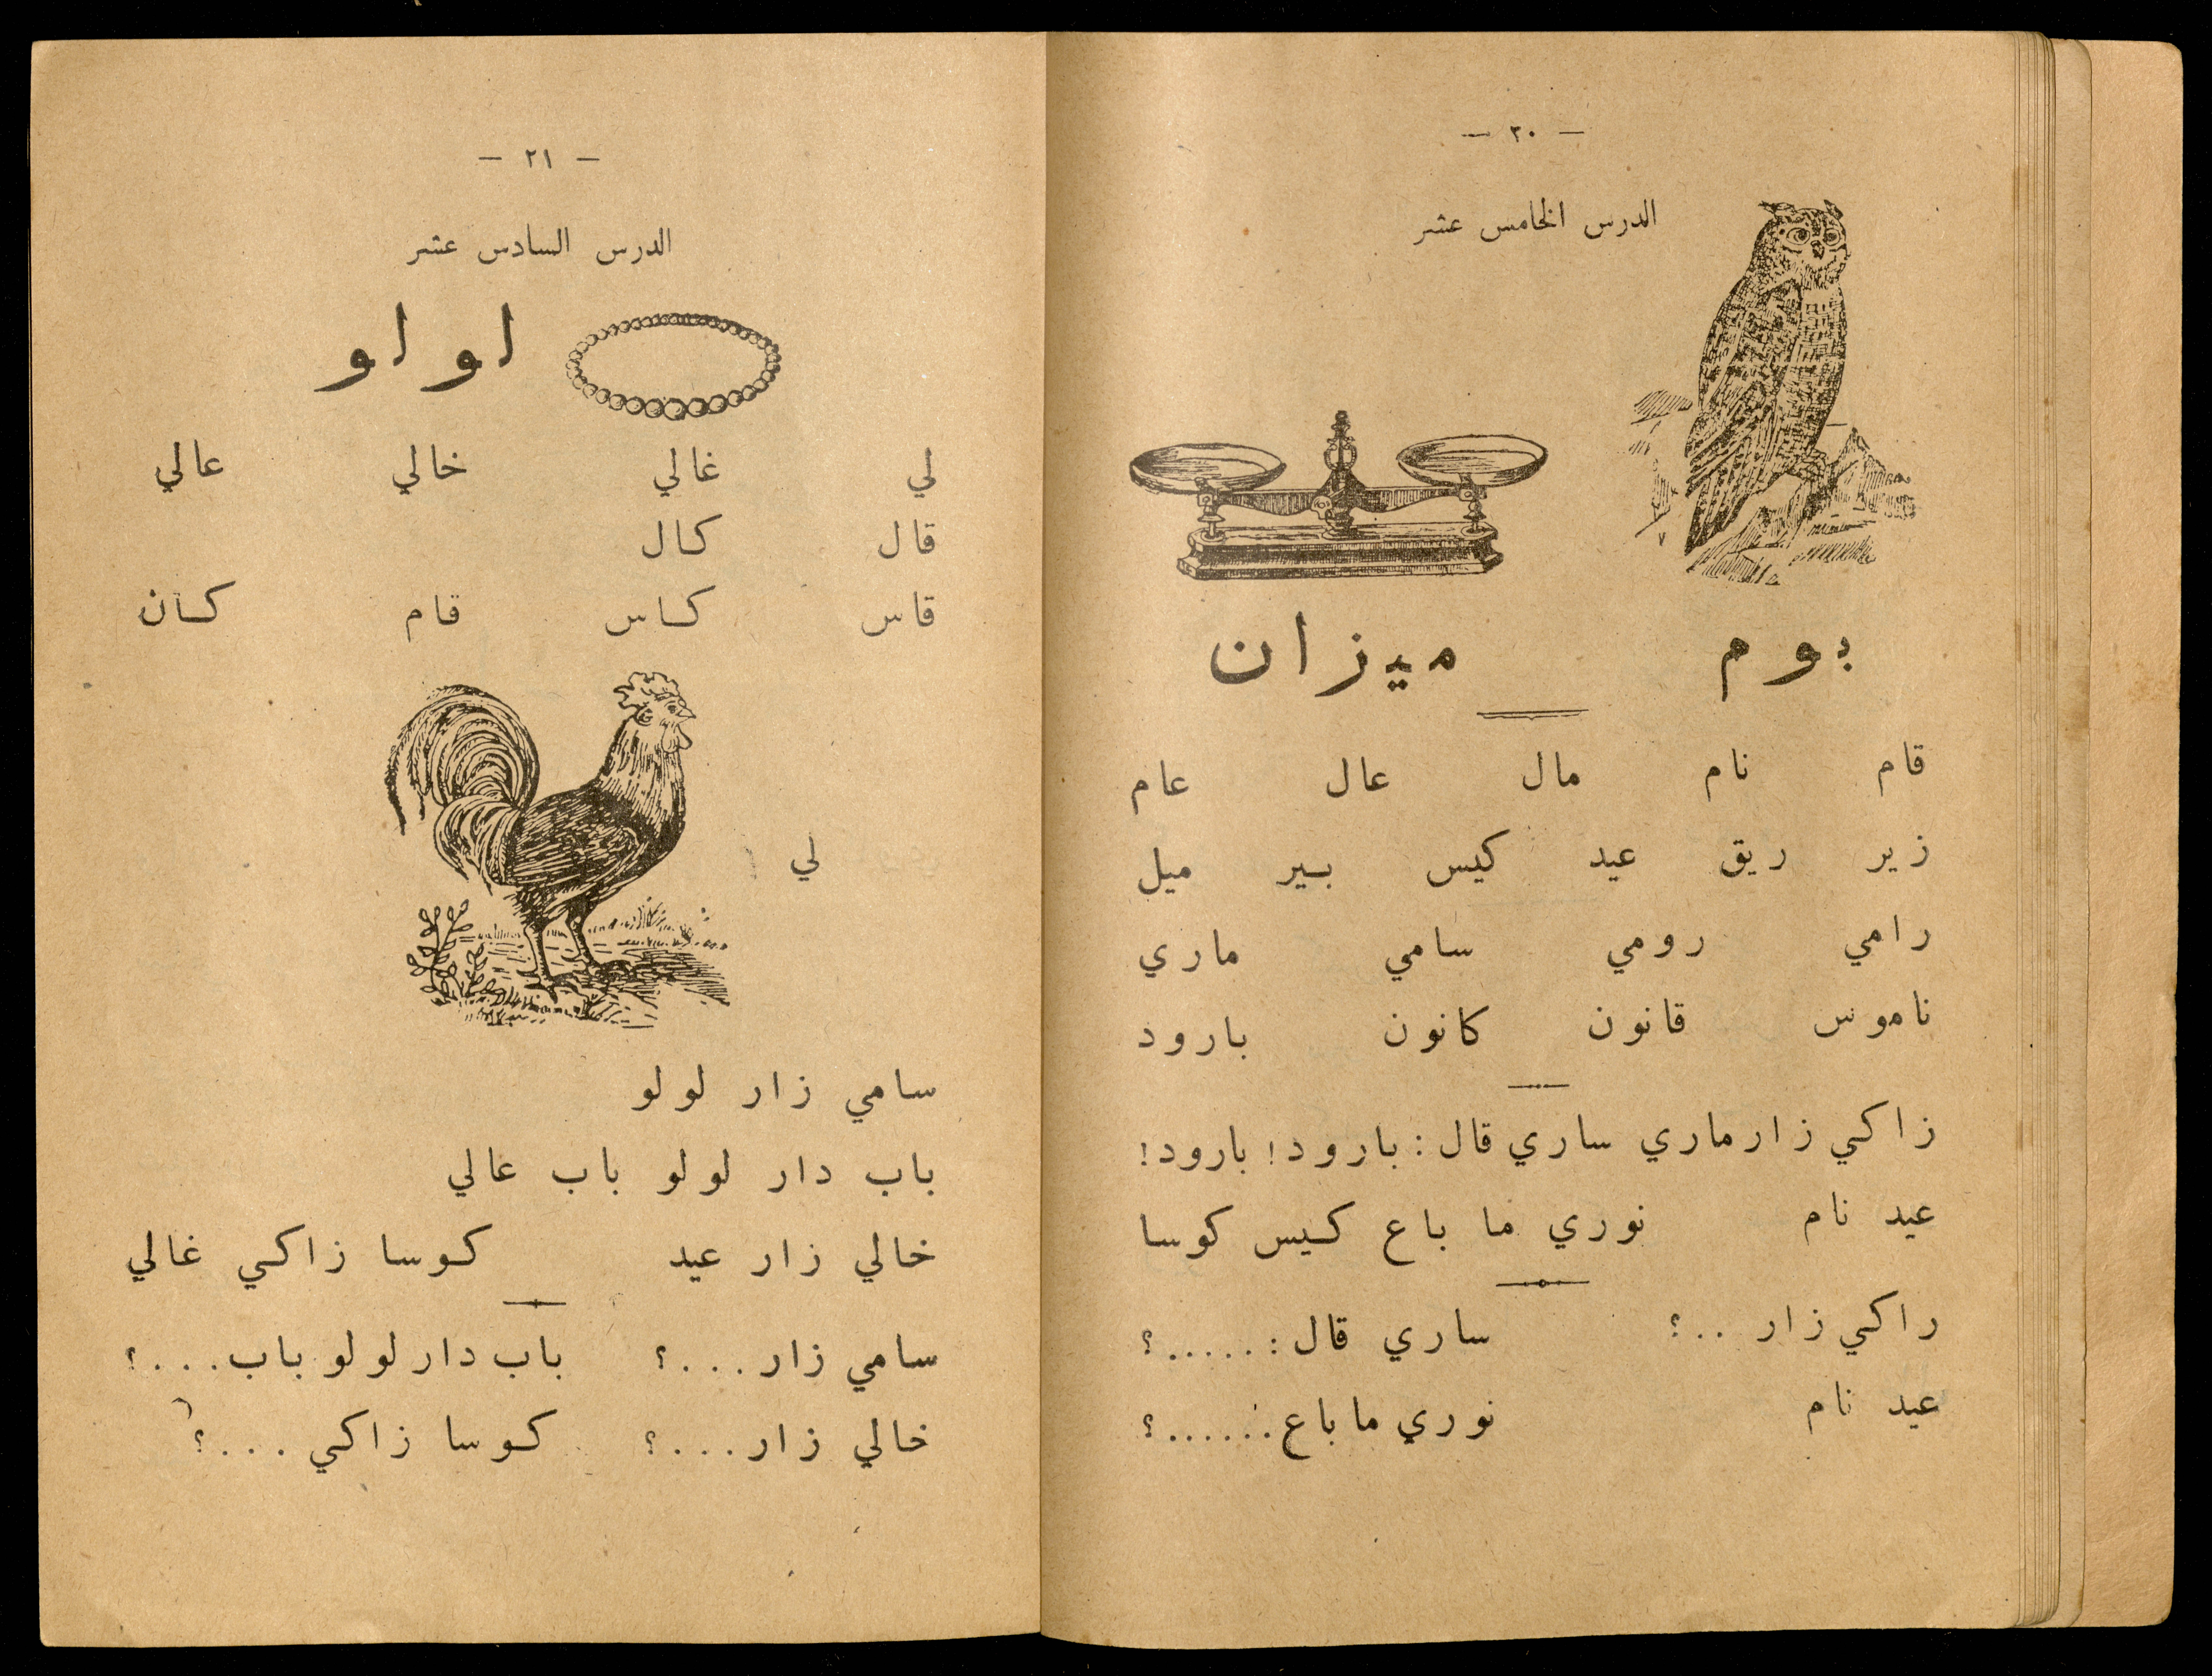 — ٢٠ —
الدرس الخامس عشر
بوم ميزان
قام نام مال عال عام
زير ريق عيد كيس بير ميل
رامي رومي سامي ماري
ناموس قانون كانون بارود
زاكي زار ماري ساري قال : بارود ! بارود !
عيد نام نوري ما باع كيس كوسا
راكي زار ..؟ ساري قال : .....؟
عيد نام نوري ما باع ......؟
— ٢١ —
الدرس السادس عشر
لو لو
لي غالي خالي عالي
قال كال
قاس كاس قام كان
لي
سامي زار لولو
باب دار لولو باب عالي
خالي زار عيد كوسا زاكي غالي
سامي زار ...؟ باب دار لولو باب ...؟
خالي زار ...؟ كوسا زاكي ...؟